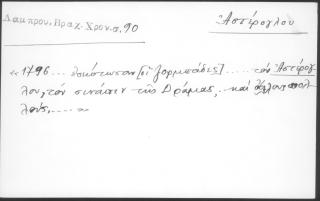 Λάμπρου, Βραχ. Χρον. σ. 90
Ἀστέρογλου
« 1796 ... ἐσκότωσαν [οἱ Γιορμπάδες] ..... τὸν Ἀστέρογ
λου, τὸν σινάπεν τῆς Δράμας, καὶ ἄλλους πολ
λούς, .... »